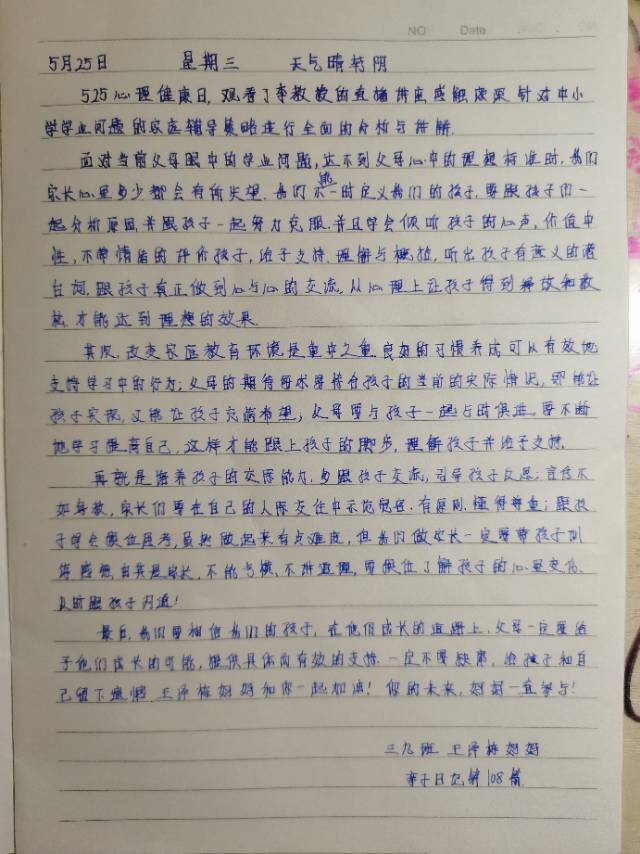 NO Date
5月25日 星期三 天气晴转阴
525心理健康日,观看了李教教的直播讲座感触颇深,针对中小
学学业问题的家庭辅导策略进行全面的分析与讲解.
面对当前父母眼中的学业问题,达不到父母心中的理想标准时,我们
家长心里多少都会有所失望.我们不能一时定义我们的孩子,要跟孩子们一
起分析原因,并跟孩子一起努力克服.并且学会倾听孩子的心声,价值中
性,不带情绪的评价孩子,给予支持.理解与概括,听出孩子有意义的潜
台词,跟孩子真正做到心与心的交流,从心理上让孩子得到释放和散
热,才能达到理想的效果.
其次,改变家庭教育环境是重中之重,良好的习惯养成可以有效地
支持学习中的行为;父母的期待要求要符合孩子的当前的实际情况,即能让
孩子实现,又能让孩子充满希望,父母要与孩子一起与时俱进,要不断
地学习提高自己,这样才能跟上孩子的脚步,理解孩子并给予支持.
再就是培养孩子的交际能力.多跟孩子交流,引导孩子反思;言传不
如身教,家长们要在自己的人际交往中示范宽容.有原则.懂得尊重;跟孩
子学会换位思考,虽然做起来有点难度,但我们做家长一定要带孩子训
练感觉自其是家长,不能专横,不讲道理,要换位了解孩子的心里变化.
及时跟孩子沟通!
最后,我们要相信我们的孩子,在他们成长的道路上,父母一定要给
予他们成长的可能,提供具体而有效的支持.一定不要缺席,给孩子和自
己留下遗憾.王泽栋妈妈和你一起加油!你的未来,妈妈一直参与!
三九班 王泽栋妈妈
亲子日记第108篇